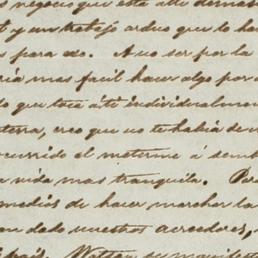 negocio que está
t y un trabajo arduo que lo ha
para eso. A no ser por la
ria mas facil hacer algo por
lo que toca á ti individualmen
terra, creo que no te habia de
currido el meterme á semb
vida mas tranquila. Per
medios de hacer marchar la
dado nuestros acreedores,
pais.